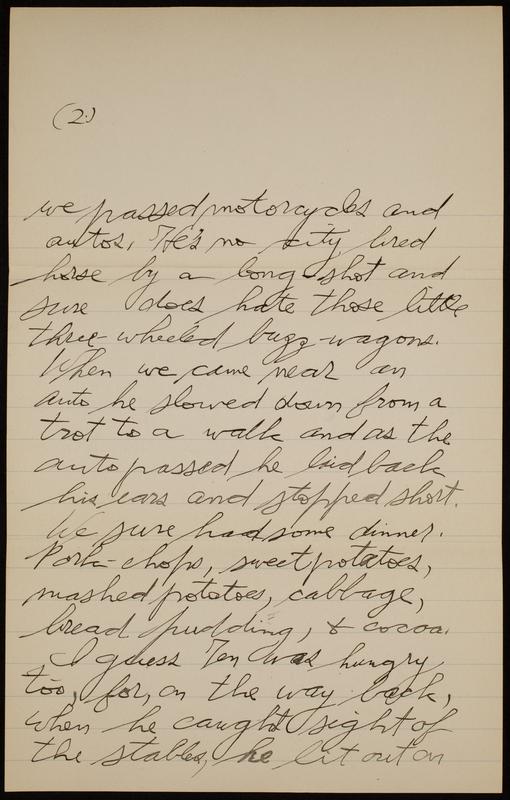 (2.)
we passed motorcycles and
autos. He's no city bred
horse by a long-shot and
sure does hate those little
three-wheeled buzz-wagons.
When we came near an
auto he slowed down from a
trot to a walk and as the
auto passed he laid back
his ears and stopped short.
We sure had some dinner.
Pork-chops, sweet potatoes,
mashed potatoes, cabbage,
bread pudding, & cocoa.
I guess Ten was hungry
too, for, on the way back,
when he caught sight of
the stables, he lit out on